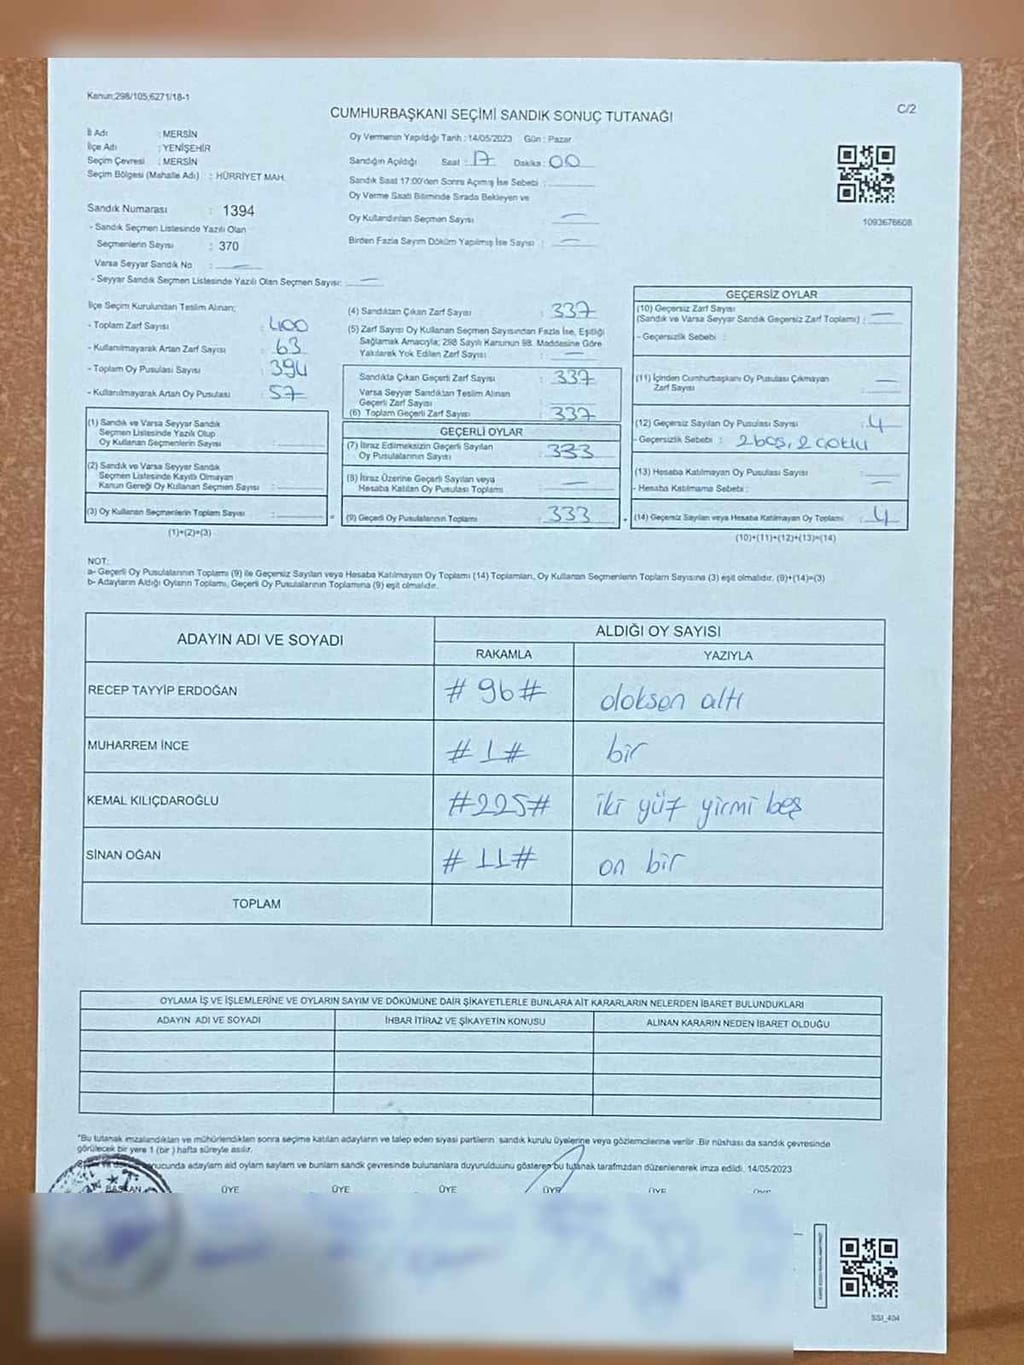 Kanun;298/105;6271/18-1
CUMHURBAŞKANI SEÇİMİ SANDIK SONUÇ TUTANAĞI
C/2
İl Adı : MERSİN
İlçe Adı : YENİŞEHİR
Seçim Çevresi : MERSİN
Seçim Bölgesi (Mahalle Adı) : HÜRRİYET MAH.
Oy Vermenin Yapıldığı Tarih : 14/05/2023 Gün : Pazar
Sandığın Açıldığı Saat : 17 Dakika : 00
Sandık Saat 17:00'den Sonra Açımış İse Sebebi :
Oy Verme Saati Bitiminde Sırada Bekleyen ve
Oy Kullandırılan Seçmen Sayısı —
Birden Fazla Sayım Döküm Yapılmış İse Sayısı : —
1093676608
Sandık Numarası : 1394
- Sandık Seçmen Listesinde Yazılı Olan
Seçmenlerin Sayısı : 370
Varsa Seyyar Sandık No : —
- Seyyar Sandık Seçmen Listesinde Yazılı Olan Seçmen Sayısı: —
İlçe Seçim Kurulundan Teslim Alınan;
- Toplam Zarf Sayısı : 400
- Kullanılmayarak Artan Zarf Sayısı : 63
- Toplam Oy Pusulası Sayısı : 394
- Kullanılmayarak Artan Oy Pusulası : 57
(1) Sandık ve Varsa Seyyar Sandık
Seçmen Listesinde Yazılı Olup
Oy Kullanan Seçmenlerin Sayısı :
(2) Sandık ve Varsa Seyyar Sandık
Seçmen Listesinde Kayıtlı Olmayan
Kanun Gereği Oy Kullanan Seçmen Sayısı :
(3) Oy Kullanan Seçmenlerin Toplam Sayısı :
(1)+(2)=(3)
(4) Sandıktan Çıkan Zarf Sayısı : 337
(5) Zarf Sayısı Oy Kullanan Seçmen Sayısından Fazla İse, Eşitliği
Sağlamak Amacıyla; 298 Sayılı Kanunun 98. Maddesine Göre
Yakılarak Yok Edilen Zarf Sayısı : —
Sandıkta Çıkan Geçerli Zarf Sayısı : 337
Varsa Seyyar Sandıktan Teslim Alınan
Geçerli Zarf Sayısı :
(6) Toplam Geçerli Zarf Sayısı : 337
GEÇERLİ OYLAR
(7) İtiraz Edilmeksizin Geçerli Sayılan
Oy Pusulalarının Sayısı : 333
(8) İtiraz Üzerine Geçerli Sayılan veya
Hesaba Katılan Oy Pusulası Toplamı : —
(9) Geçerli Oy Pusulalarının Toplamı : 333
GEÇERSİZ OYLAR
(10) Geçersiz Zarf Sayısı
(Sandık ve Varsa Seyyar Sandık Geçersiz Zarf Toplamı) : —
- Geçersizlik Sebebi :
(11) İçinden Cumhurbaşkanı Oy Pusulası Çıkmayan
Zarf Sayısı : —
(12) Geçersiz Sayılan Oy Pusulası Sayısı : 4
- Geçersizlik Sebebi : 2 boş, 2 çoklu
(13) Hesaba Katılmayan Oy Pusulası Sayısı : —
- Hesaba Katılmama Sebebi : —
(14) Geçersiz Sayılan veya Hesaba Katılmayan Oy Toplamı : 4
(10)+(11)+(12)+(13)=(14)
NOT:
a- Geçerli Oy Pusulalarının Toplamı (9) ile Geçersiz Sayılan veya Hesaba Katılmayan Oy Toplamı (14) Toplamları, Oy Kullanan Seçmenlerin Toplam Sayısına (3) eşit olmalıdır. (9)+(14)=(3)
b- Adayların Aldığı Oyların Toplamı, Geçerli Oy Pusulalarının Toplamına (9) eşit olmalıdır.
ADAYIN ADI VE SOYADI ALDIĞI OY SAYISI
RAKAMLA YAZIYLA
RECEP TAYYİP ERDOĞAN #96# doksan altı
MUHARREM İNCE #1# bir
KEMAL KILIÇDAROĞLU #225# iki yüz yirmi beş
SİNAN OĞAN #11# on bir
TOPLAM
OYLAMA İŞ VE İŞLEMLERİNE VE OYLARIN SAYIM VE DÖKÜMÜNE DAİR ŞİKAYETLERLE BUNLARA AİT KARARLARIN NELERDEN İBARET BULUNDUKLARI
ADAYIN ADI VE SOYADI İHBAR İTİRAZ VE ŞİKAYETİN KONUSU ALINAN KARARIN NEDEN İBARET OLDUĞU
"Bu tutanak imzalandıktan ve mühürlendikten sonra seçime katılan adayların ve talep eden siyasi partilerin sandık kurulu üyelerine veya gözlemcilerine verilir. Bir nüshası da sandık çevresinde
görülecek bir yere 1 (bir) hafta süreyle asılır.
sonucunda adayların aid oyların sayıların ve bunların sandık çevresinde bulunanlara duyurulduunu gösteren bu tutanak tarafımızdan düzenlenerek imza edildi. 14/05/2023
BAŞKAN ÜYE ÜYE ÜYE ÜYE ÜYE ÜYE
SSI_404